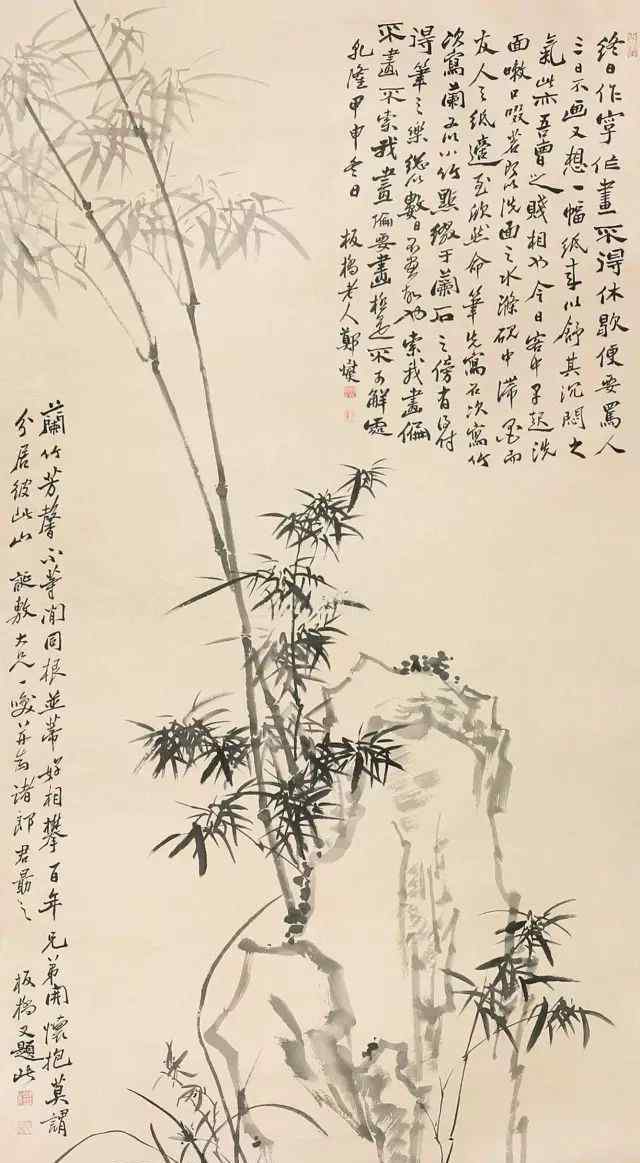 終日作字作畫不得休歇便要罵人
三日不画又想一幅紙來以舒其沉悶之
氣此亦吾曹之賤相也今日客中早起洗
面嗽口啜茗即以洗面之水滌硯中滯墨而
友人之紙適至欣然命筆先寫石次寫竹
次寫蘭又以小竹點綴于蘭石之傍
得筆之樂總以數日不畫故也索我畫偏
不畫不索我畫偏要畫極是不可解處
乾隆甲申冬日板橋老人鄭燮
蘭竹芳馨不等閒同根並蒂好相攀百年兄弟開懷抱莫謂
分居彼此山 誕敷大兄一咲并示諸郎君勗之 板橋又題此